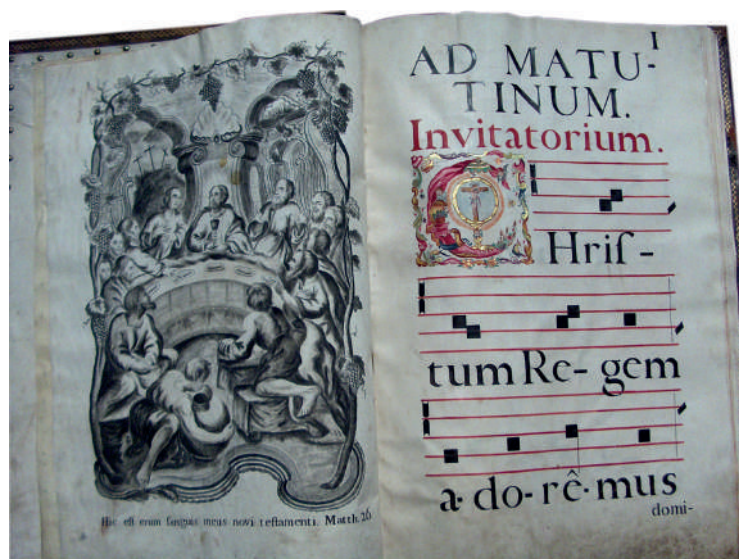 Hic est enim sanguis meus novi testamenti. Matth. 26
I
AD MATU-
TINUM.
Invitatorium.
C
Hriſ-
tum Re- gem
a- do- rê- mus
domi-